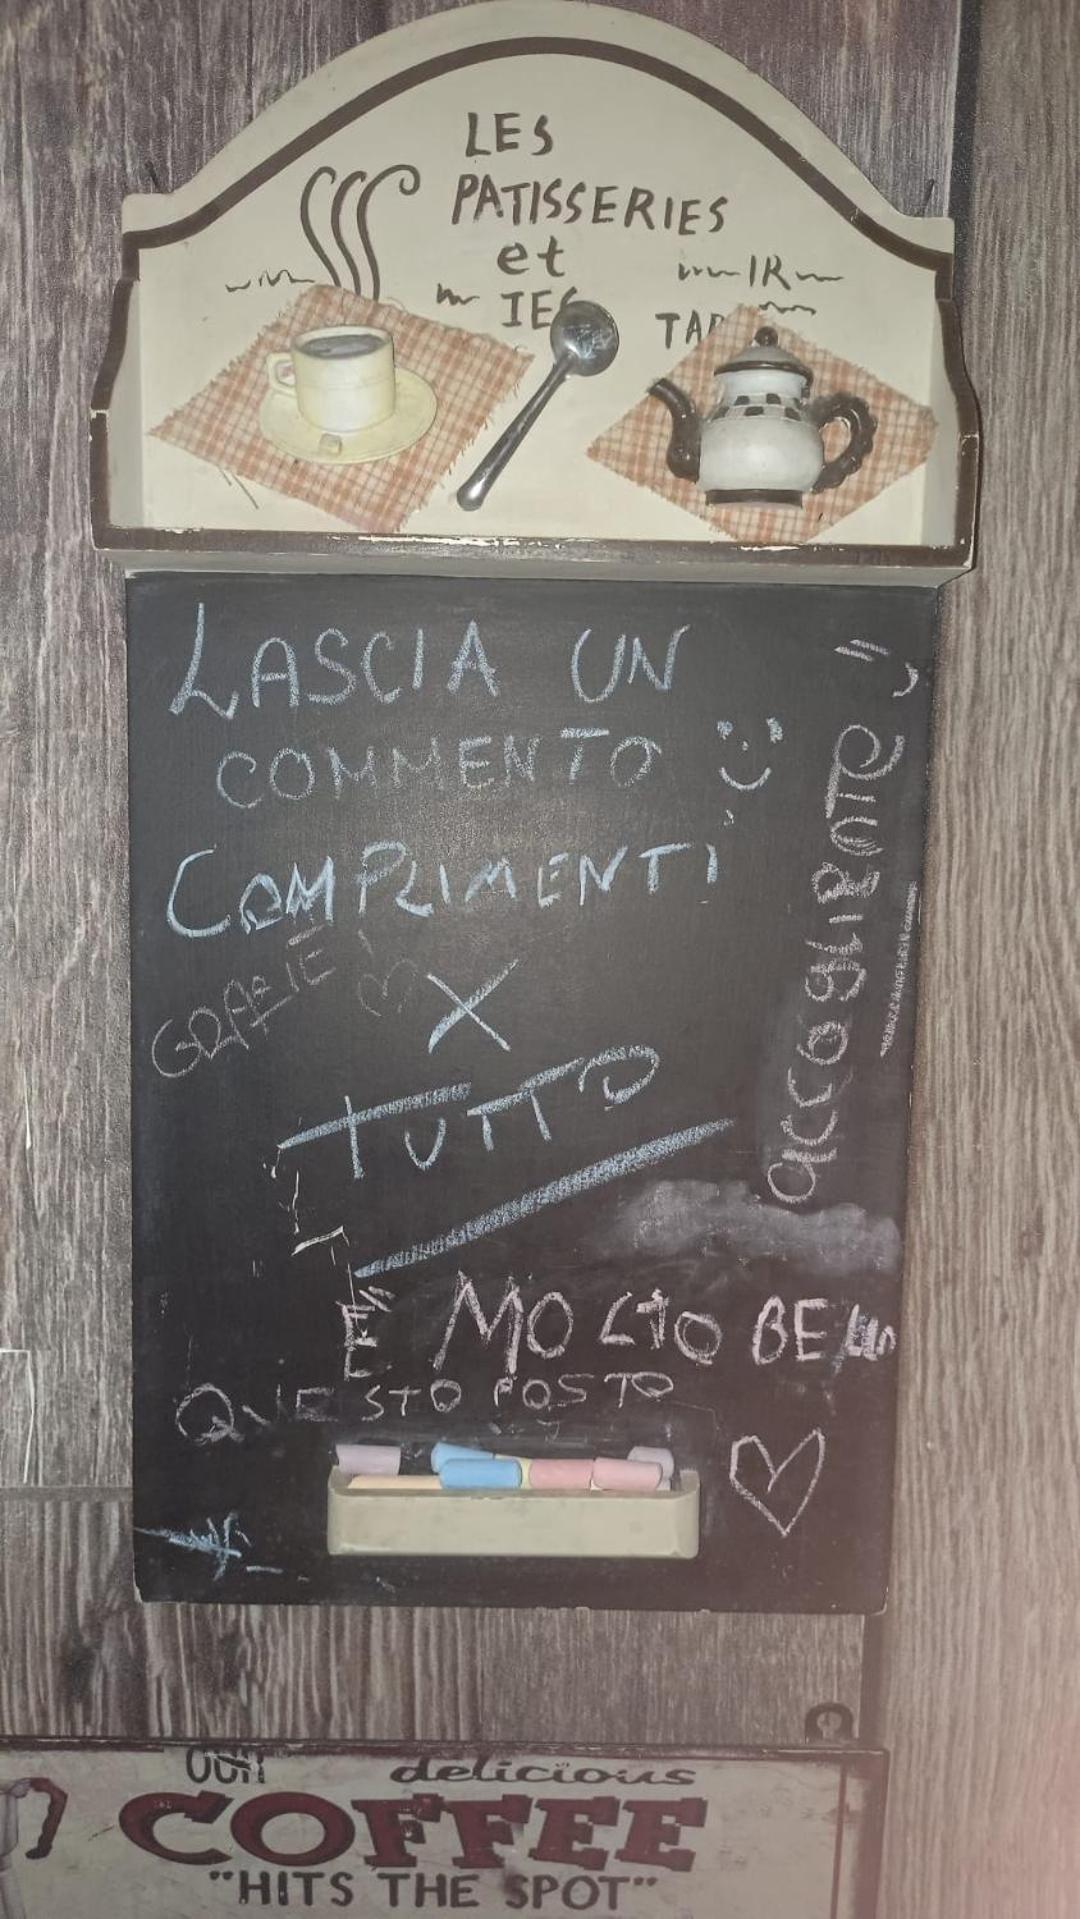 LES
PATISSERIES
et
IR
LASCIA UN
COMMENTO
COMPLIMENTI
GRAZIE
X
TUTTO
È MOLTO BELLO
QUESTO POSTO
delicious
COFFEE
"HITS THE SPOT"